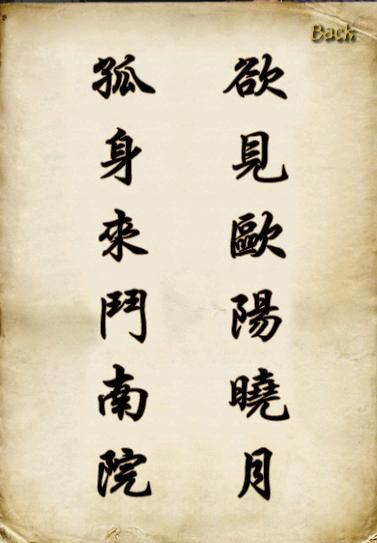 Back
欲見歐陽曉月
孤身來鬥南院